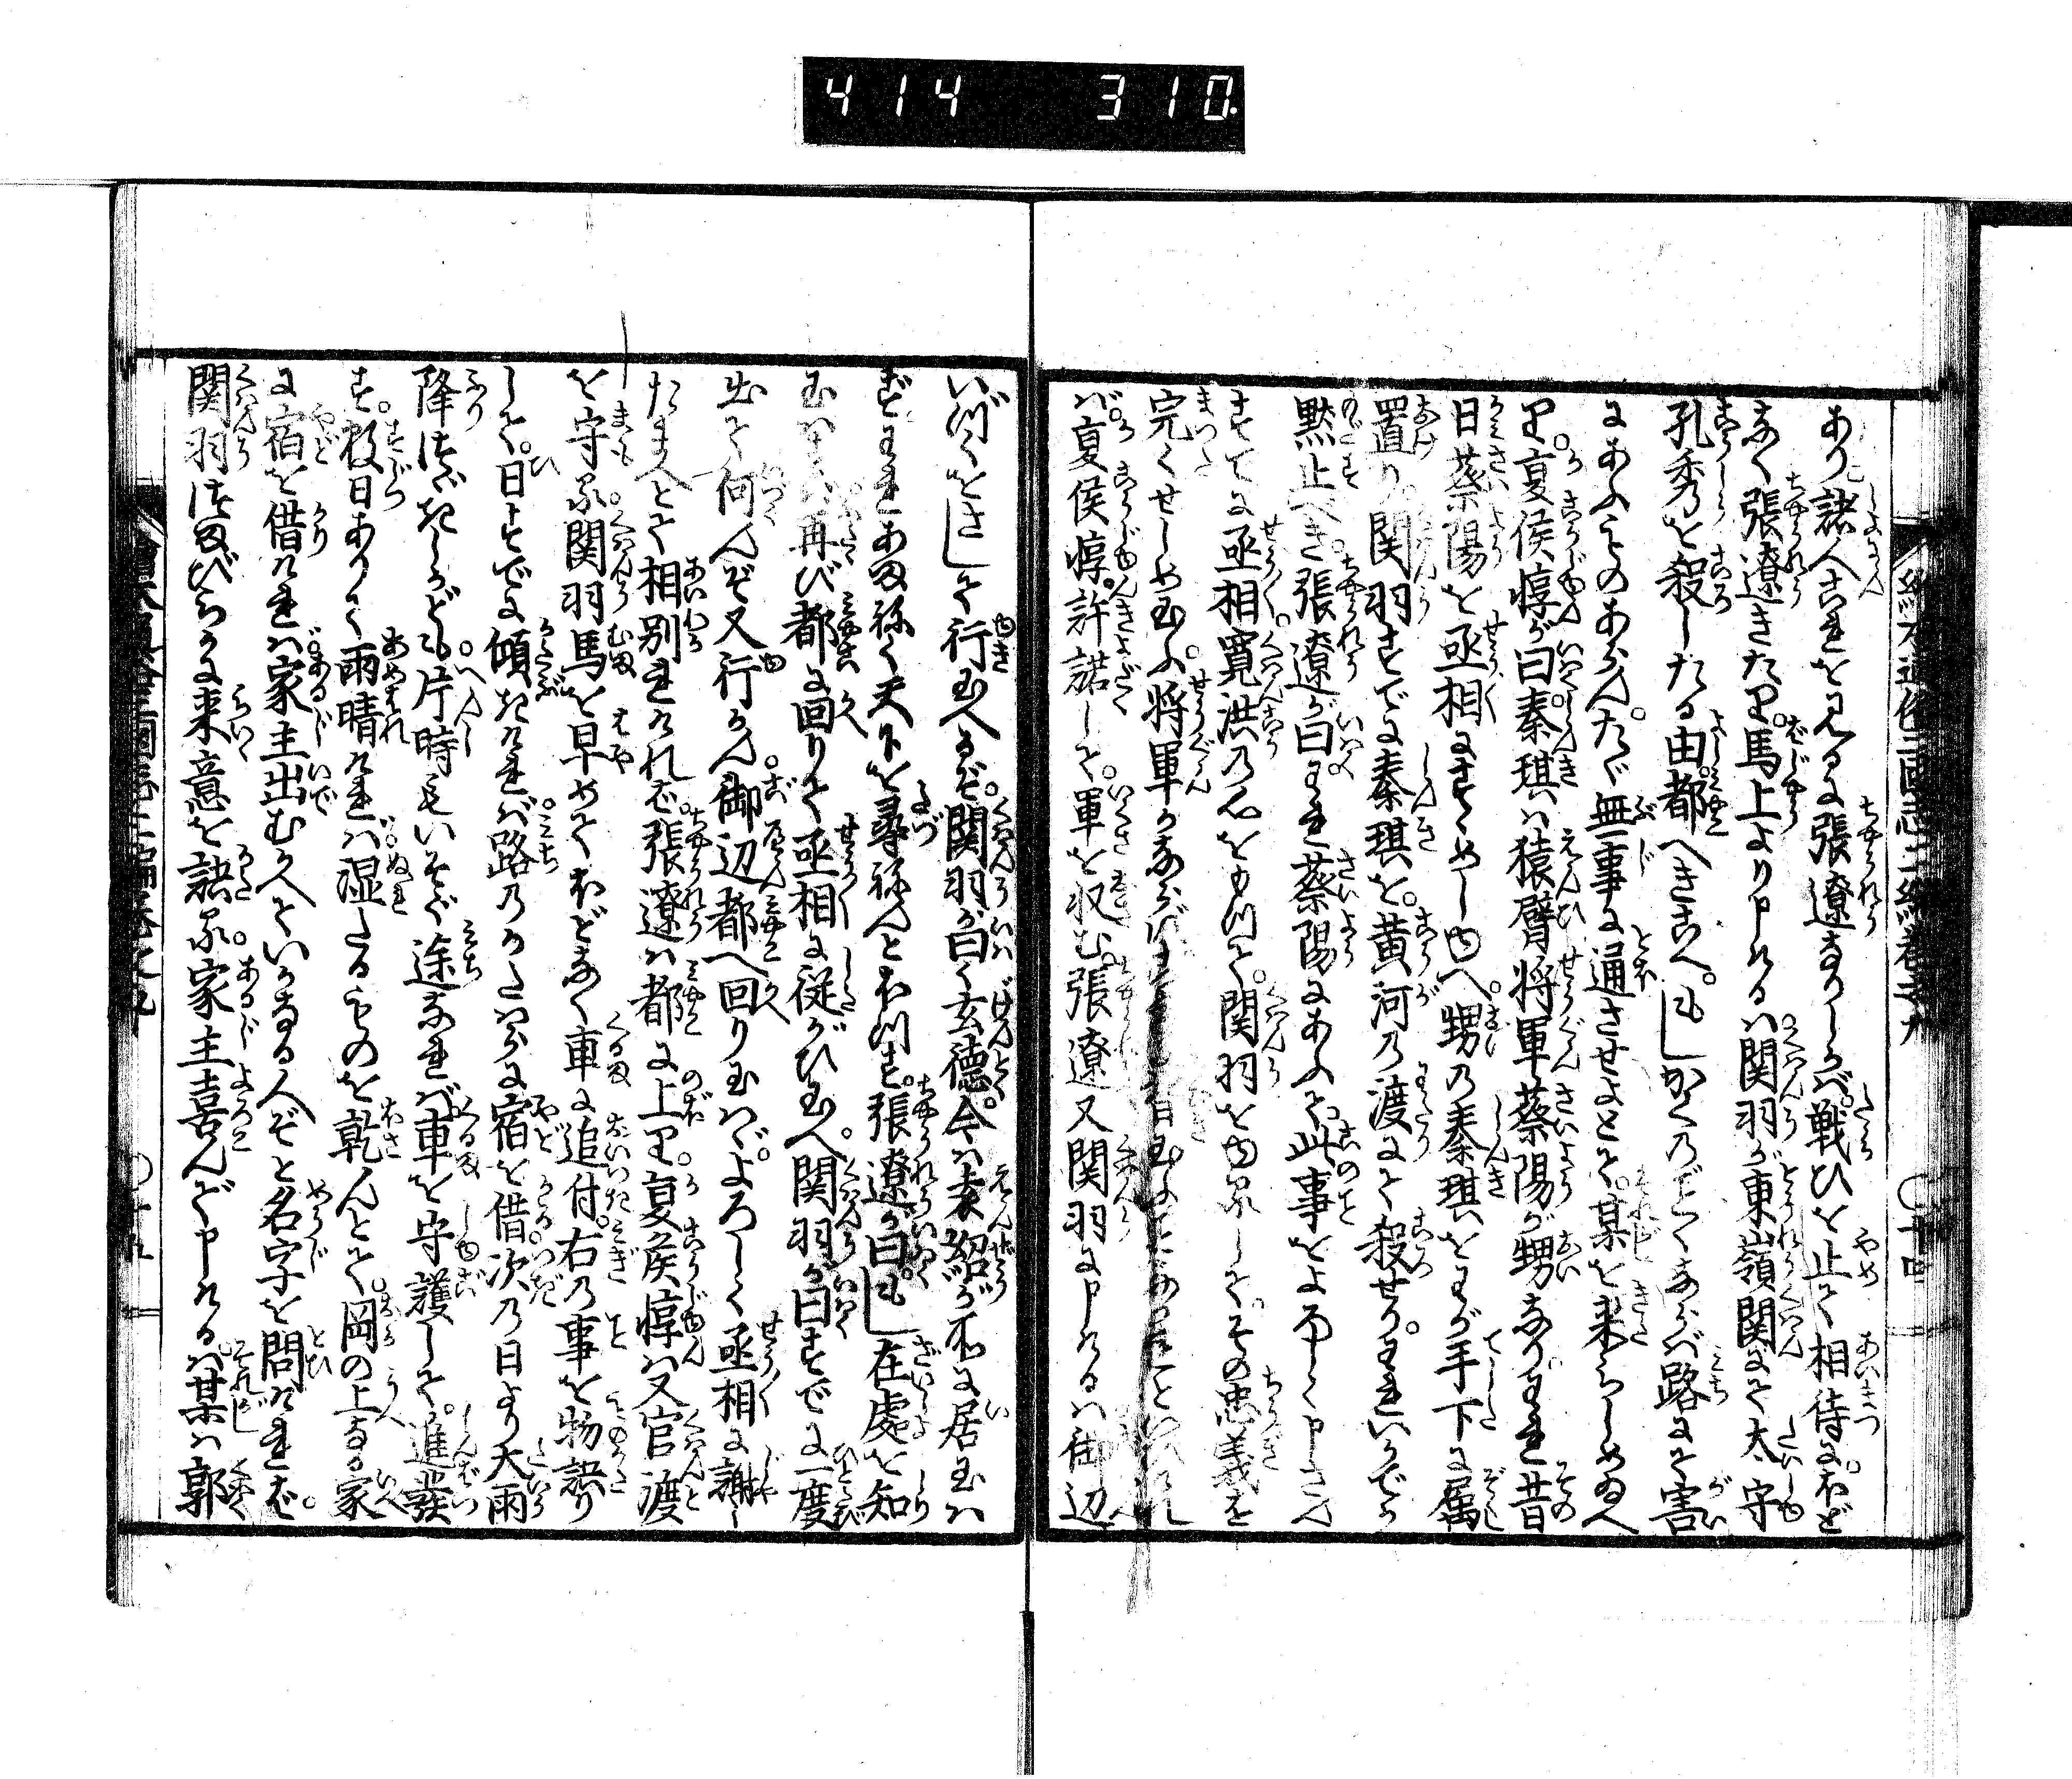 414 310.
絵本通俗三國志二編巻之九
〇十四
あり諸人これをみるに張遼なりしかば戦ひを止て相待にほど
なく張遼きたり馬上より申けるは関羽が東嶺関にて太守
孔秀を殺したる由都へきこへしかくのごとくあらば路にて害
にあふものあらんたゞ無事に通させよとて某を来らしめ給へ
り夏侯惇が曰秦琪は猿臂将軍蔡陽が甥なりわれ昔
日蔡陽を丞相にすゝめしゆへ甥の秦琪をわが手下に属
置り関羽すでに秦琪を黄河の渡にて殺せりわれいかでか
黙止べき張遼が曰われ蔡陽にあふて此事をよろしく申さん
すでに丞相寛洪の心をもつて関羽をゆるしてその忠義を
完くせしめ玉ふ将軍
ば夏侯惇許諾して軍を収む張遼又関羽に申けるは御辺
いづくをさして行玉へるぞ関羽が曰く玄徳今は袁紹が所に居玉は
ずわれあまねく天下を尋ねんとほつす張遼が曰もし在處を知
玉はずは再び都に回りて丞相に従がひ玉へ関羽が曰すでに一度
出て何んぞ又行かん御辺都へ回り玉はゞよろしく丞相に謝し
たまへとて相別れければ張遼は都に上り夏侯惇は又官渡
を守る関羽馬を早めてほどなく車に追付右の事を物語り
して日すでに傾きければ路のかたはらに宿を借次の日より大雨
降つゞきしかども片時もいそぐ途なれば車を守護して進發
す数日ありて雨晴ければ湿たるものを乾んとて岡の上なる家
に宿を借ければ家主出むかへていかなる人ぞと名字を問ければ
関羽つまびらかに来意を語る家主喜んで申けるは某は郭